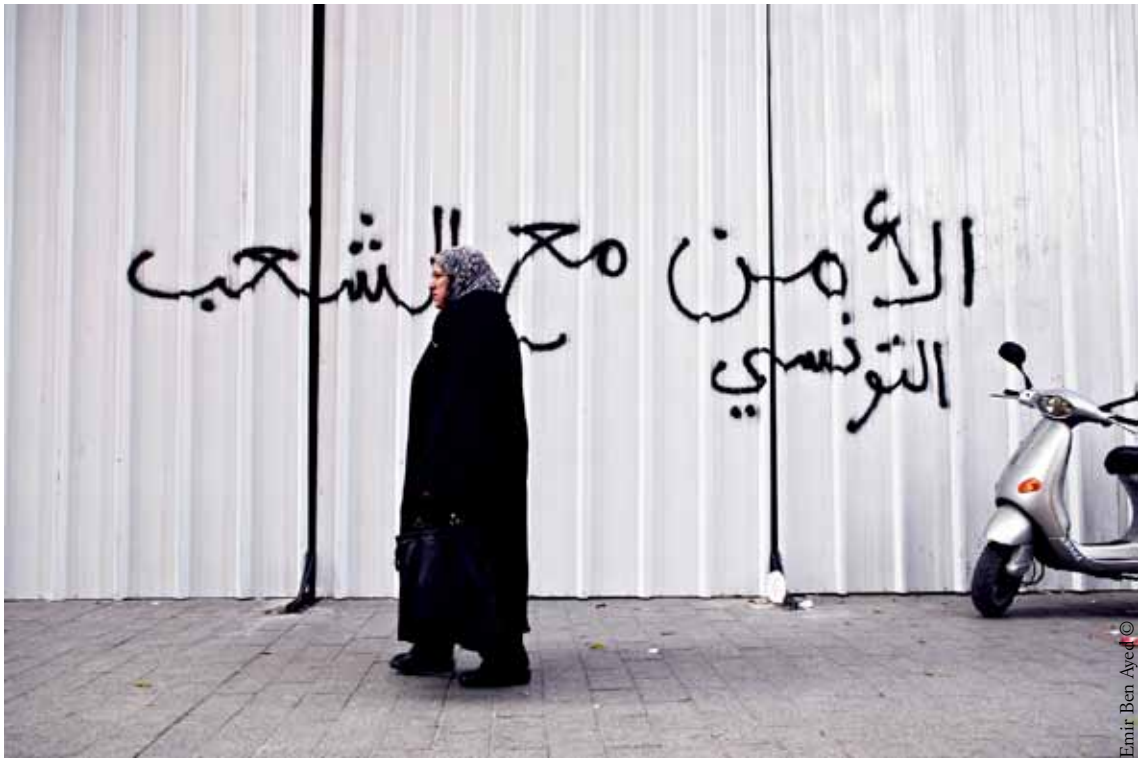 الأمن مع الشعب
التونسي
Emir Ben Ayed ©